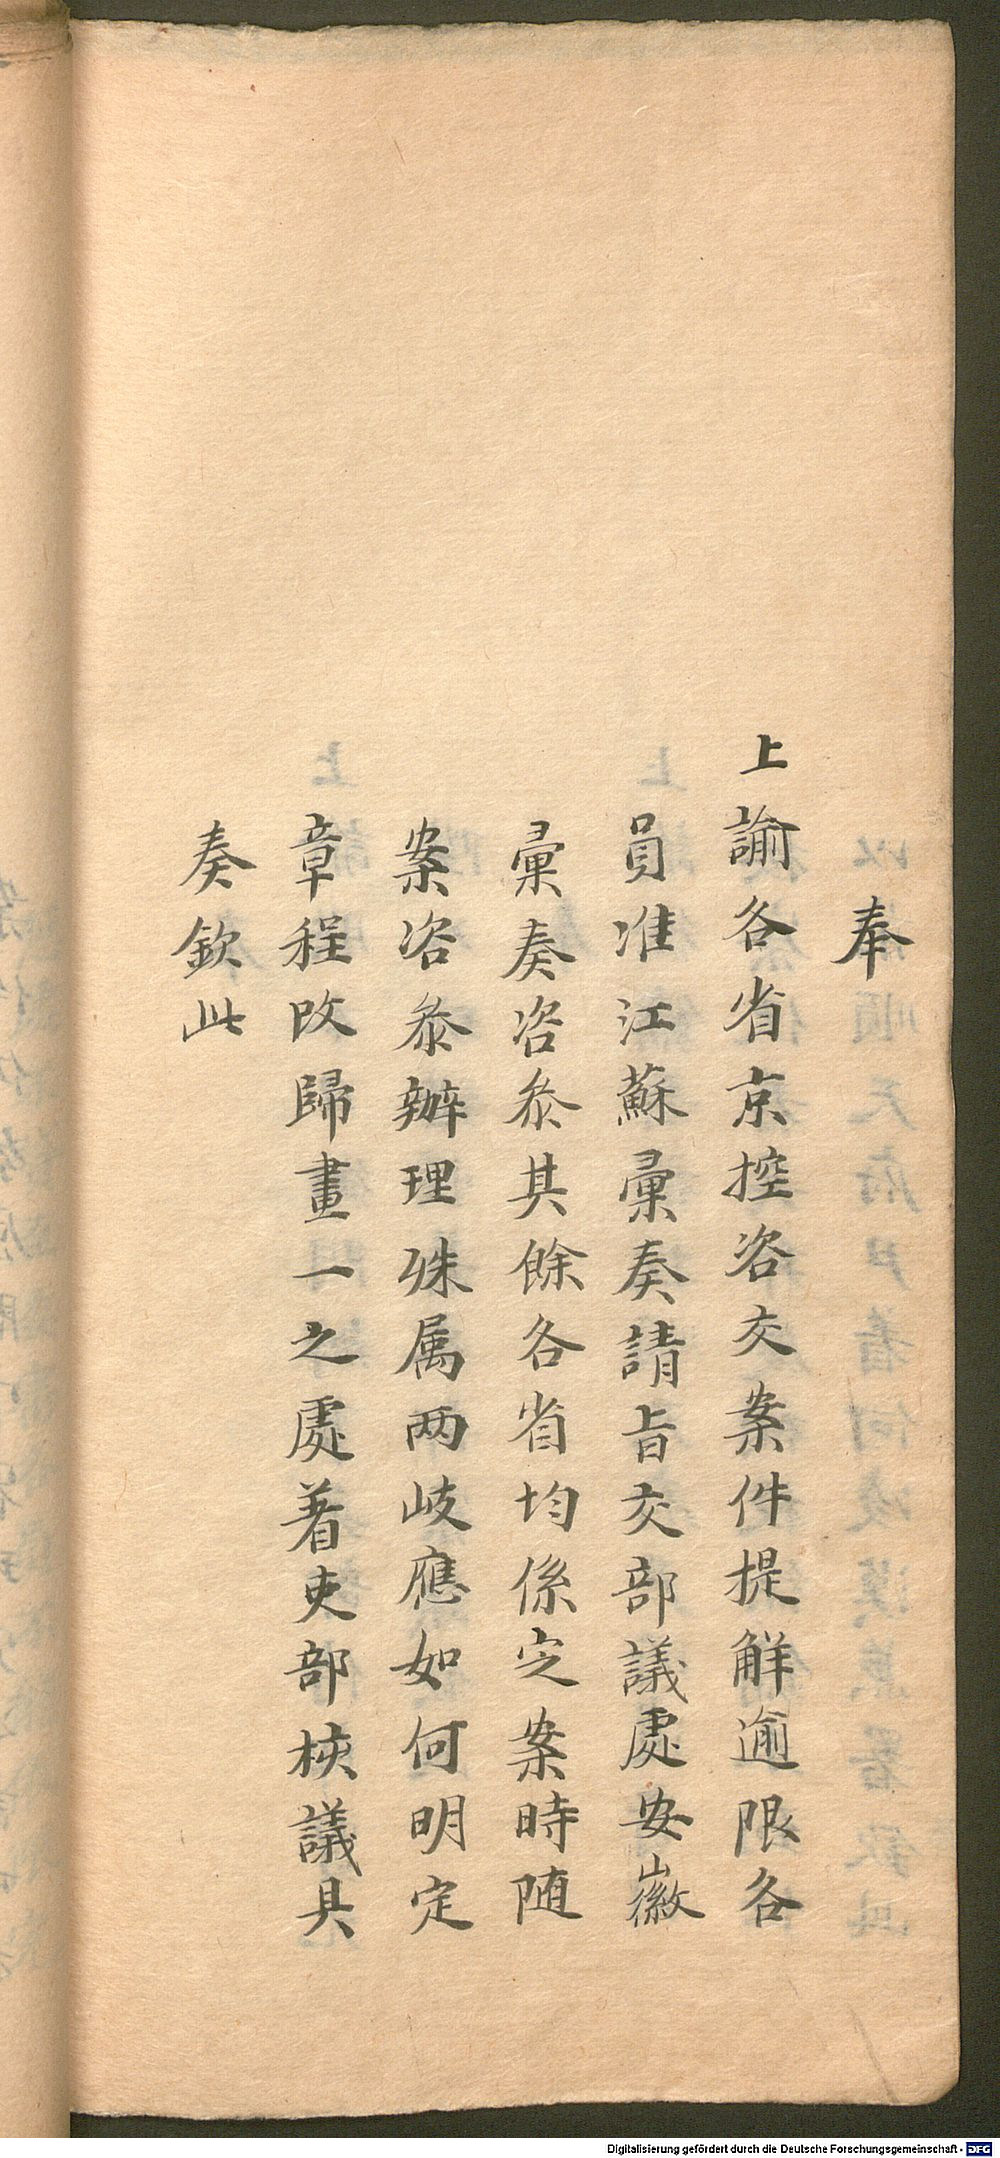 奉
上諭各省京控咨交案件提觧逾限各
員准江蘇彙奏請旨交部議處安徽
彙奏咨叅其餘各省均係定案時随
案咨叅辦理殊属两歧應如何明定
章程改歸畫一之處著吏部核議具
奏欽此
Digitalisierung gefördert durch die Deutsche Forschungsgemeinschaft - DFG